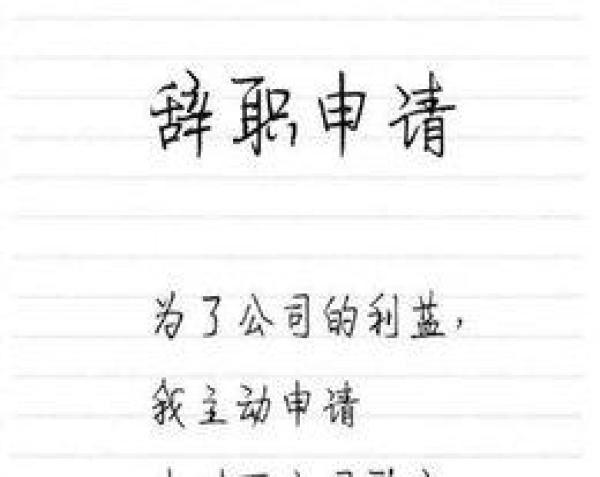 辞职申请
为了公司的利益，
我主动申请